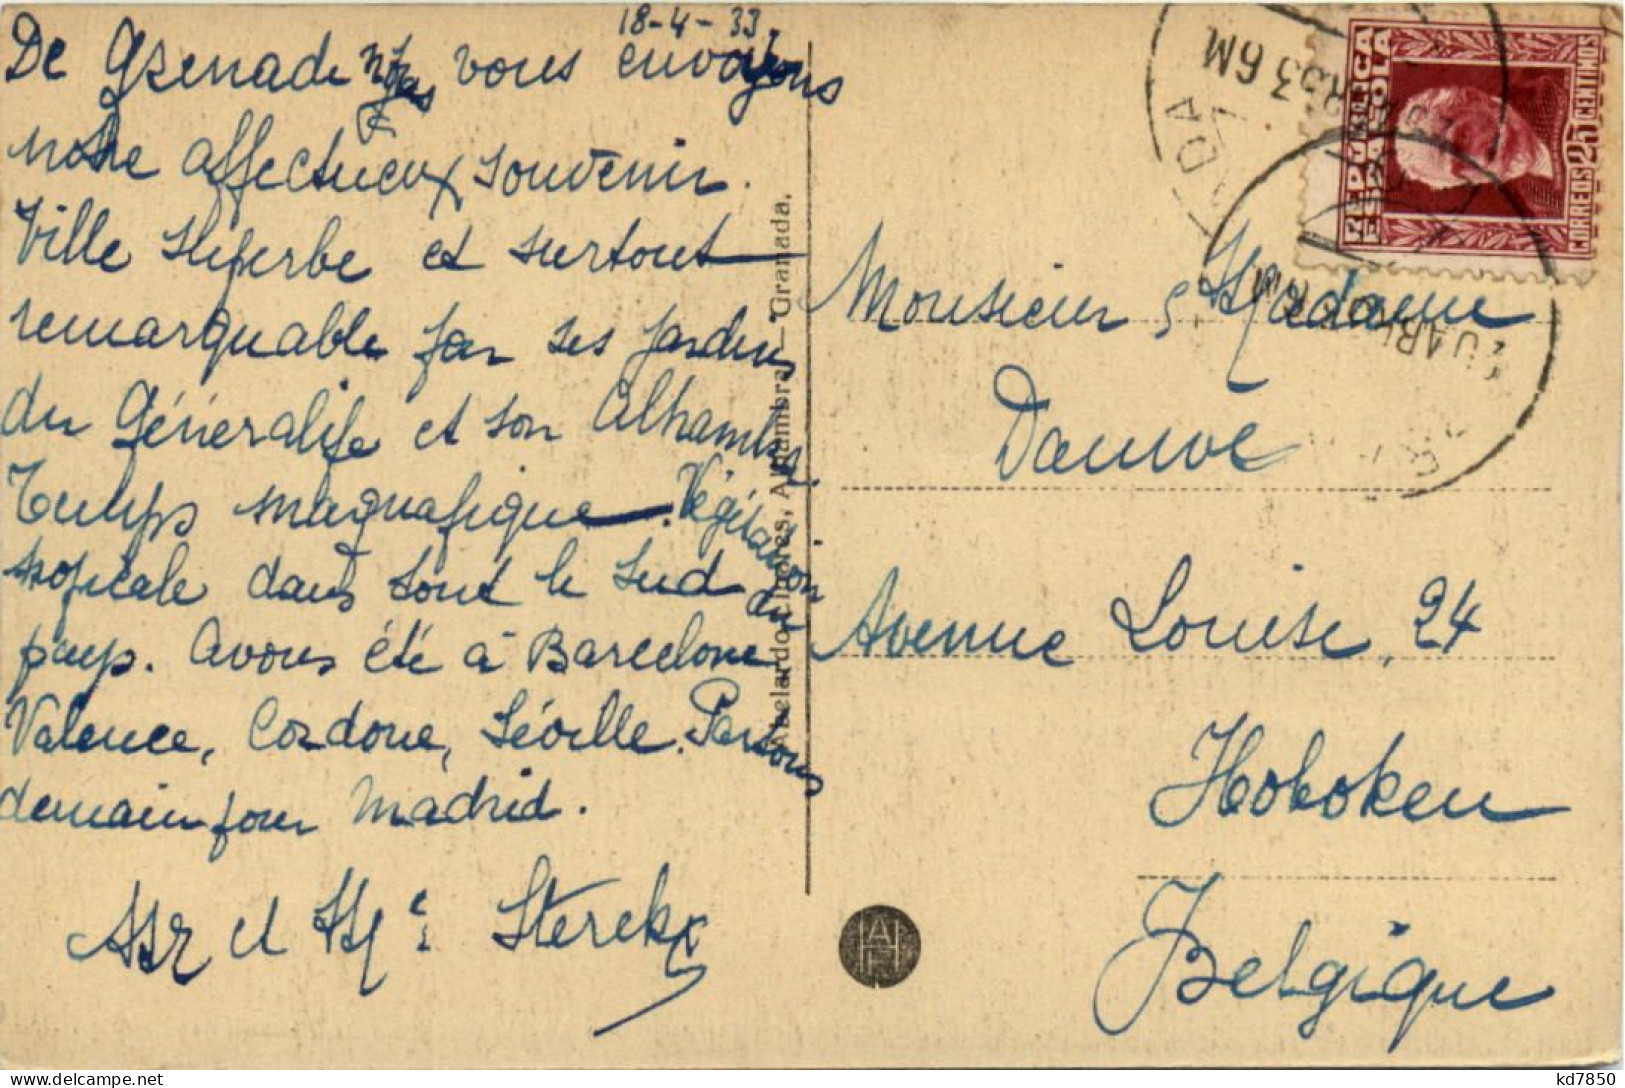 18-4-33
De Grenade nous vous envoyons
notre affectueux souvenir.
Ville superbe et surtout
remarquable par ses jardins
du Généralife et son Alhambra
Temps magnafique. Végétation
tropicale dans tout le sud du
pays. Avons été à Barcelone
Valence, Cordoue, Séville. Partons
demain pour Madrid.
Mr et Me Sterckx
Abelardo Linares, Alhambra.- Granada.
REPUBLICA
ESPAÑOLA
CORREOS 25 CENTIMOS
33 6M
Monsieur & Madame
Dauwe
Avenue Louise, 24
Hoboken
Belgique
kd7850